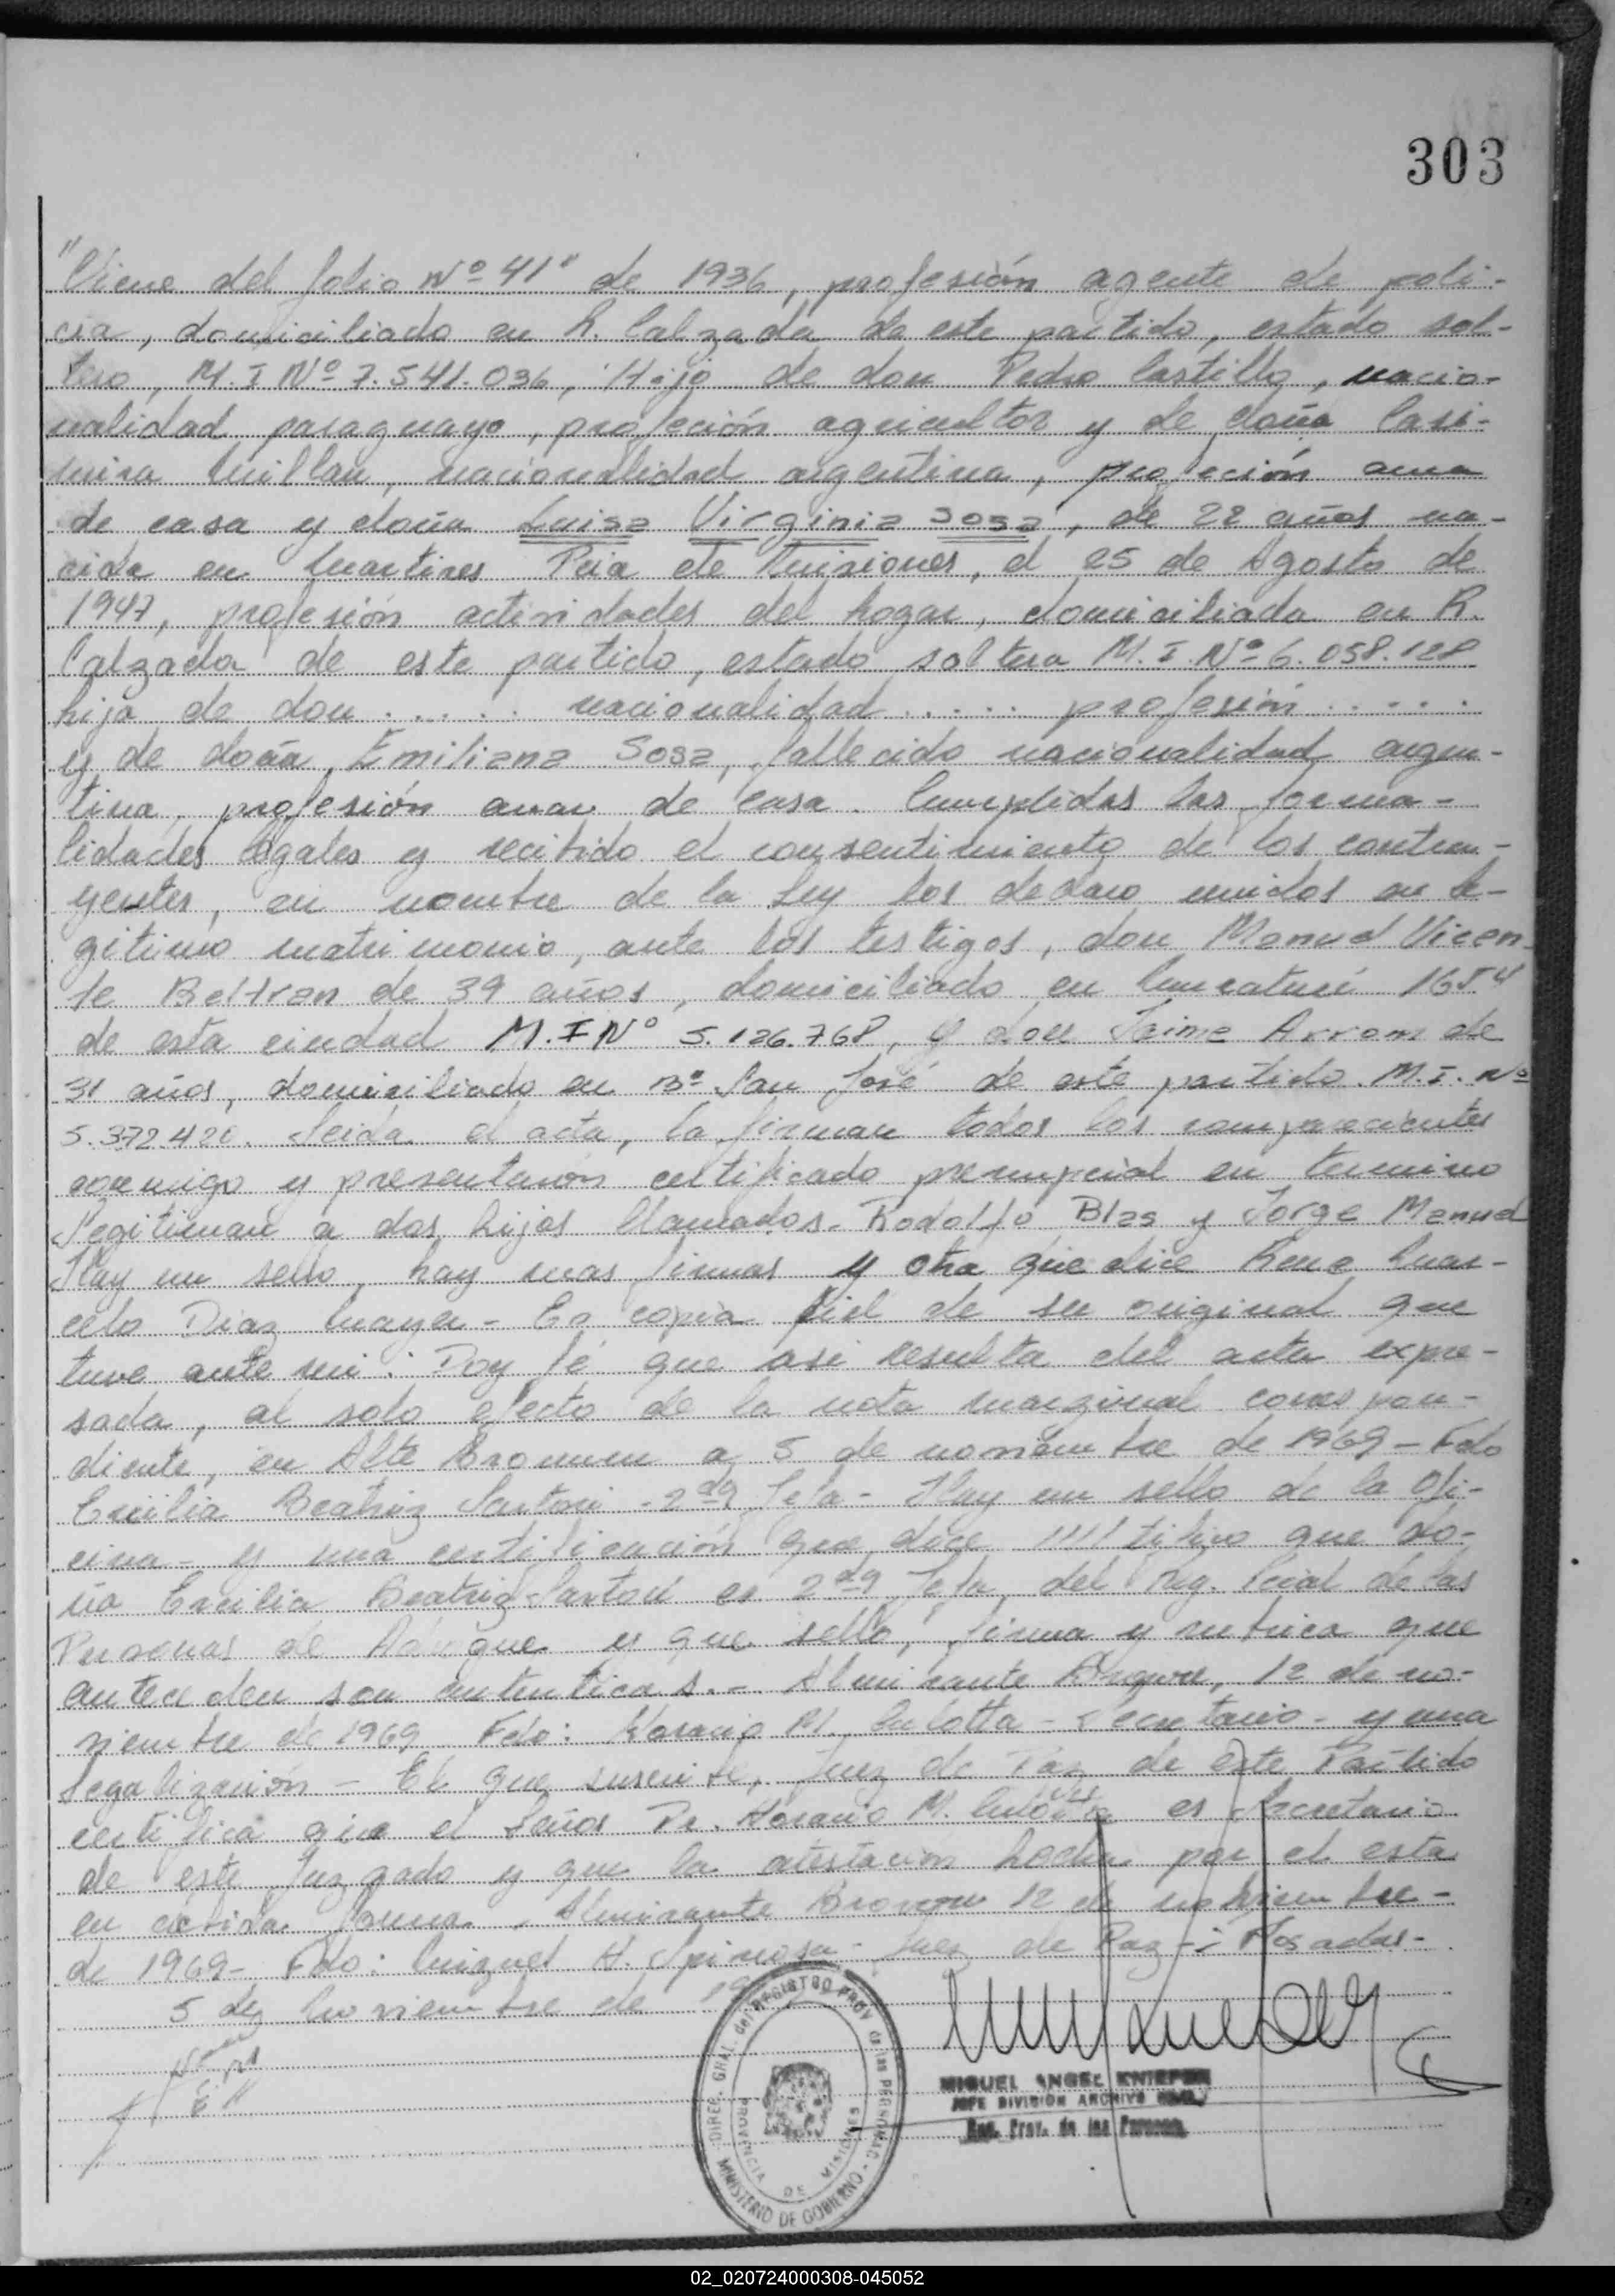 303
"Viene del folio Nº 41" de 1936, profesión agente de poli-
cia, domiciliado en R. Calzada de este partido, estado sol-
tero, M.I Nº 7.541.036, Hijo de don Pedro Castillo, nacio-
nalidad paraguayo, profeción agricultor y de doña Casi-
mira Millan, nacionalidad argentina, profeción ama
de casa y doña Luisa Virginia Sosa, de 22 años na-
cida en Martires Pcia de Misiones, el 25 de Agosto de
1947, profesión actividades del hogar, domiciliada en R.
Calzada de este partido, estado soltera M.I. Nº 6.058.128
hija de don ..... nacionalidad ..... profesión .....
y de doña Emiliana Sosa, fallecido nacionalidad argen-
tina, profesión amau de casa. Cumplidas las forma-
lidades legales y recibido el consentimiento de los contra-
yentes, en nombre de la Ley los declaro unidos en le-
gitimo matrimonio, ante los testigos, don Manuel Vicen-
te Beltran de 39 años, domiciliado en 1654
de esta ciudad M.I Nº 5.126.768, y don Jaime Arrom de
31 años, domiciliado en Bº San José de este partido. M.I. Nº
5.372.420. Leida el acta, la firman todos los comparecientes
conmigo y presentaron certificado prenupcial en termino
Legitiman a dos hijos llamados - Rodolfo Blas y Jorge Manuel
Hay un sello, hay unas firmas y otra que dice Rene Mar-
celo Diaz Mayer - Es copia fiel de su original que
tuve ante mi: Doy fé que asi resulta del acta expre-
sada, al solo efecto de la nota marginal correspon-
diente, en Alte Brown a 5 de noviembre de 1969 - Fdo
Ercilia Beatriz Santori - 2da Jefa - Hay un sello de la Ofi-
cina - y una certificación que dice tifico que do-
ña Ercilia Beatriz Sartori es 2da Jefa del Reg. Pcial de las
Personas de y que sello, firma y rubrica que
anteceden son autenticas.- Almirante Brown, 12 de no-
viembre de 1969 Fdo: Horacio M. Culotta - Secretario - y una
Legalización - El que suscribe, Juez de Paz de este Partido
certifica que el Señor Dr. Horacio M. Culotta es Secretario
de este Juzgado y que la atestacion hecha por el esta
en debida forma. Almirante Brown 12 de noviembre -
de 1969 - Fdo: Miguel H. Spinosa - Juez de Paz - Posadas -
5 de Noviembre de 19
DIREC. GRAL. del REGISTRO PROV de las PERSONAS
PROVINCIA DE MISIONES
MINISTERIO DE GOBIERNO
MIGUEL ANGEL KNIEPER
JEFE DIVISION ARCHIVO
Reg. Prov. de las Personas
02_020724000308-045052